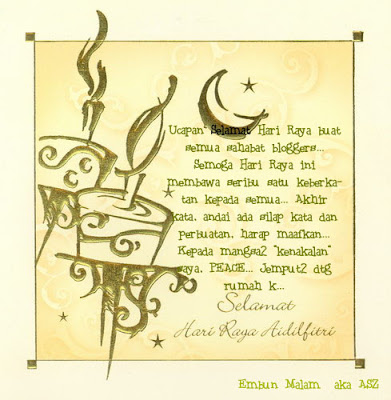 Ucapan" Selamat Hari Raya buat
semua sahabat bloggers...
Semoga Hari Raya ini
membawa seribu satu keberka-
tan kepada semua... Akhir
kata, andai ada silap kata dan
perbuatan, harap maafkan...
Kepada mangsa2 "kenakalan"
saya, PEACE... Jemput2 dtg
rumah k...
Selamat
Hari Raya Aidilfitri
Embun Malam aka ASZ